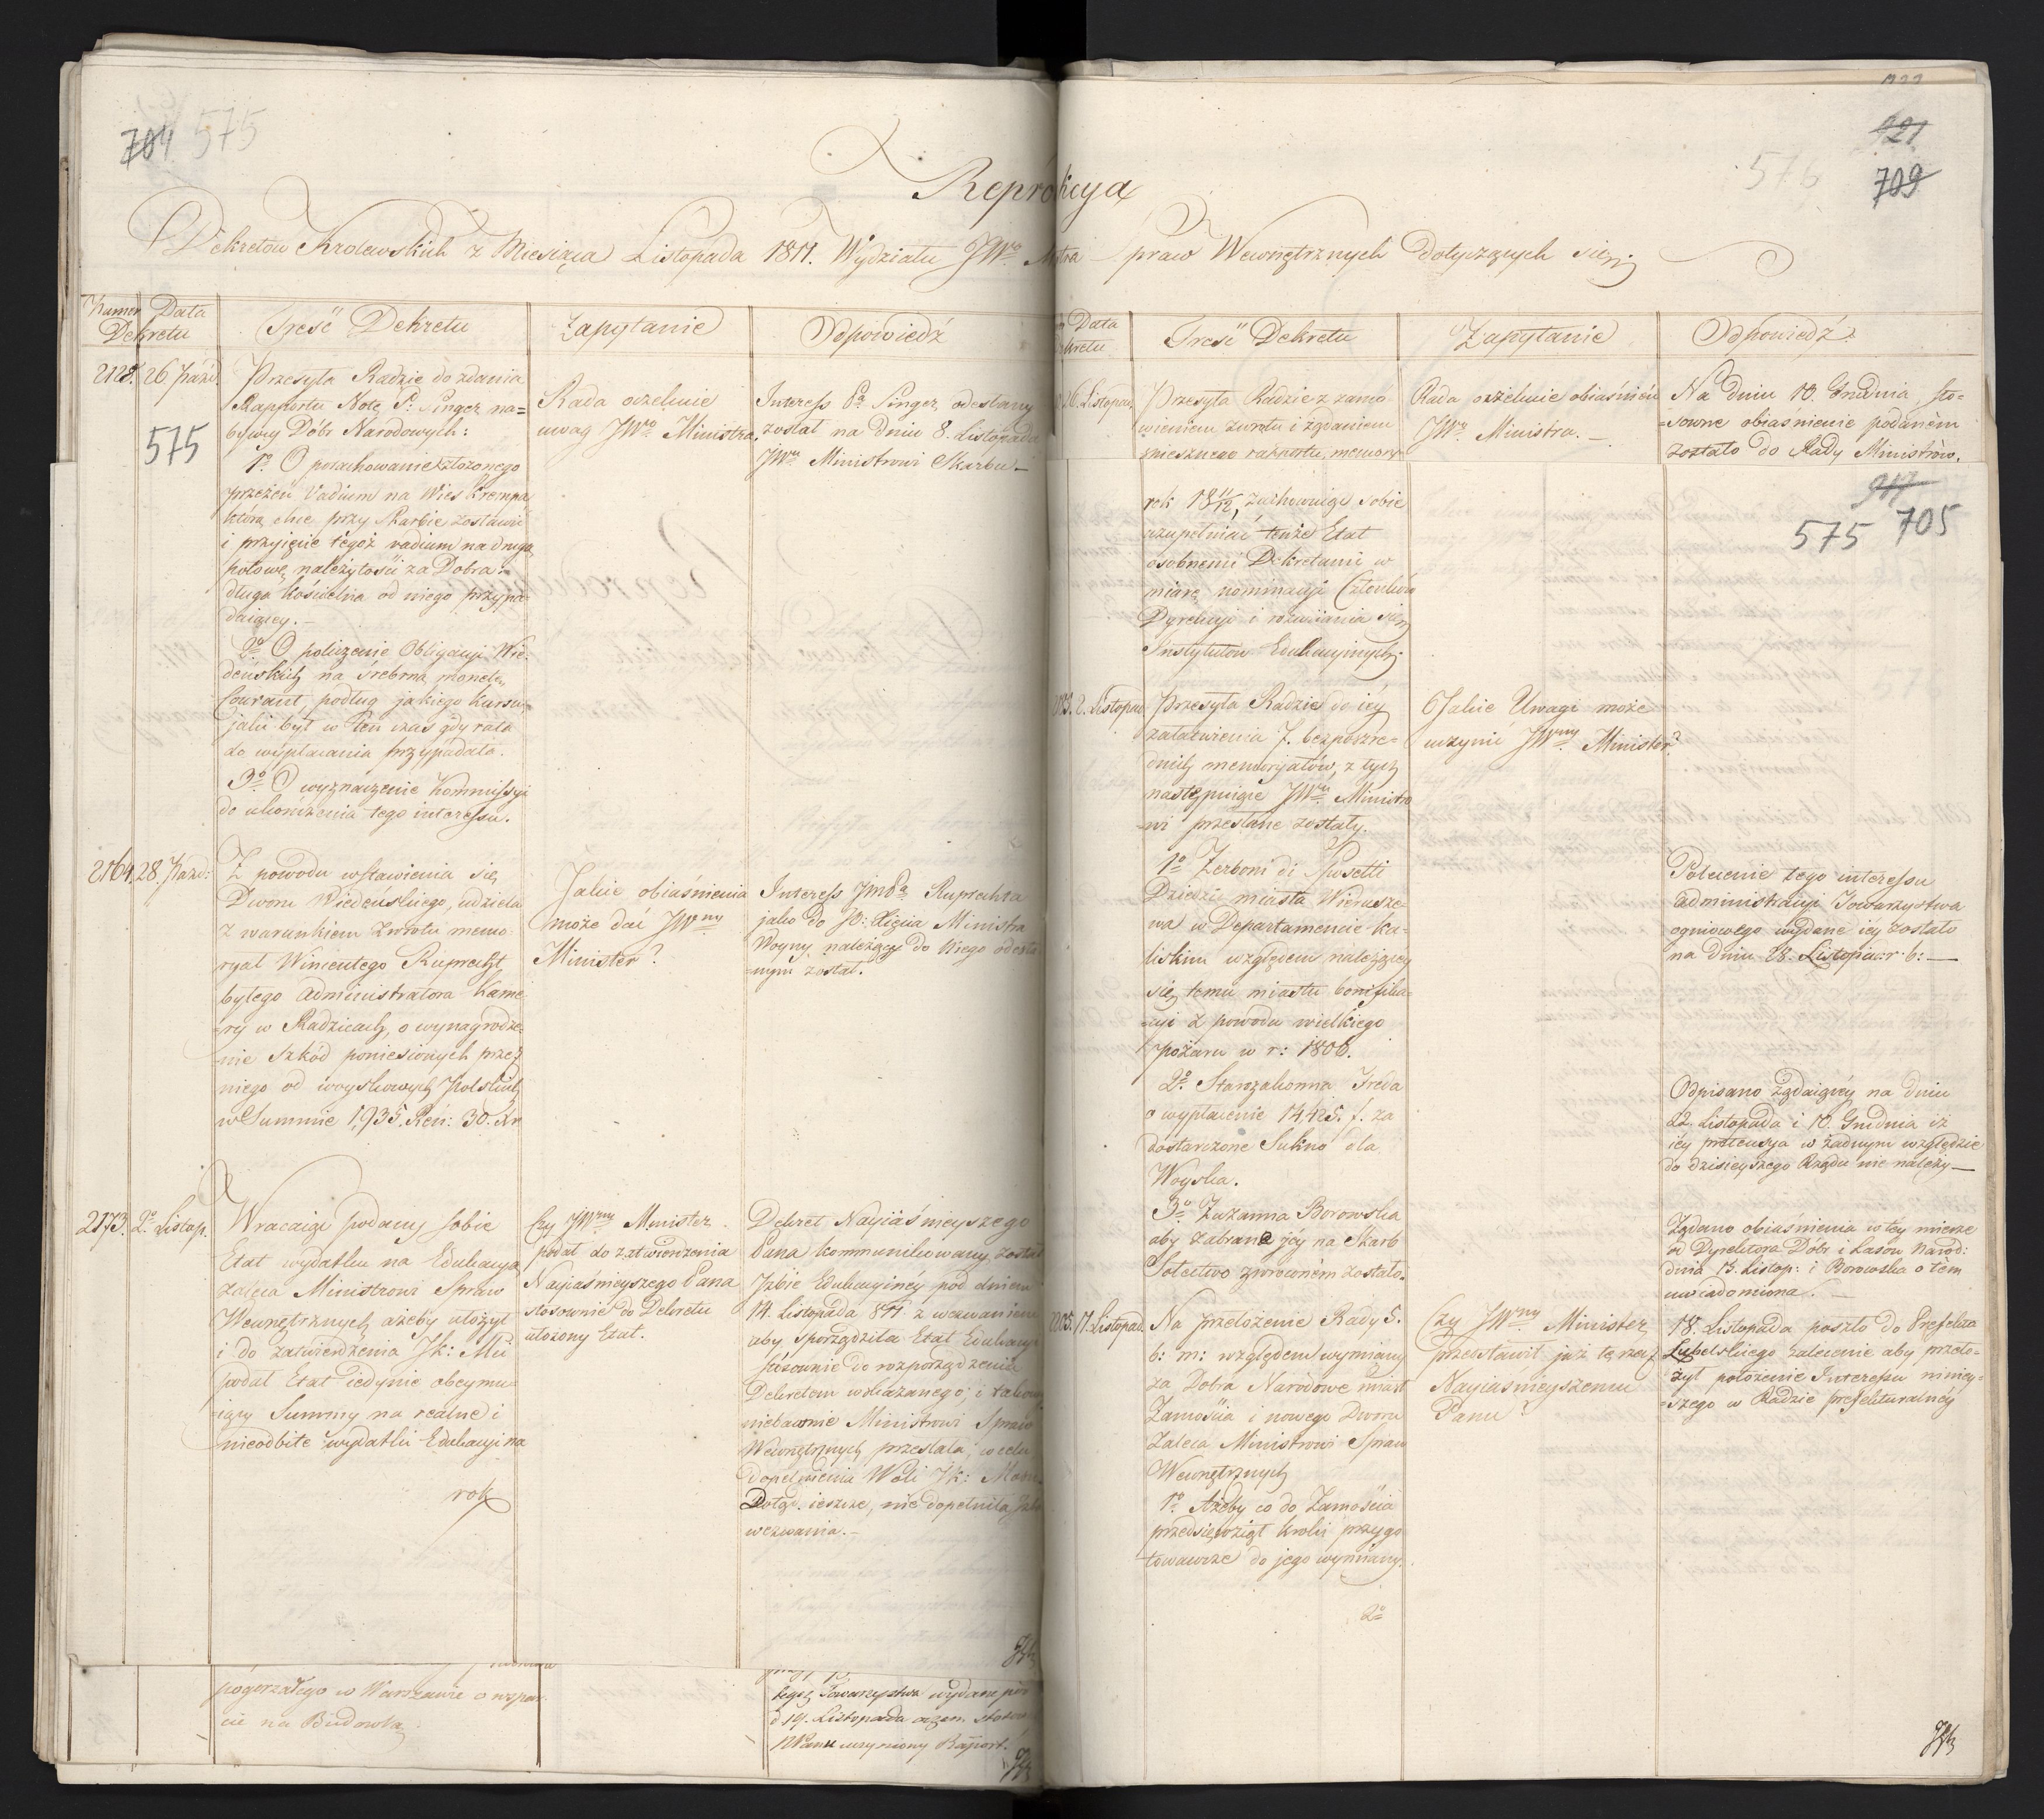 704 575
921
576 709
Reprodukcya
Dekretow Krolewskich z Miesiąca Listopada 1811. Wydziału JWo Mstra Spraw Wewnętrznych dotyczących się
Numer Data
Dekretu
Treść Dekretu
Zapytanie
Odpowiedź
2128. 26. Pazd.
575
Przesyła Radzie do zdania
Rapportu Notę P: Singer na=
bywcy Dóbr Narodowych:
1o O porachowanie złożonego
przezeń Vadium na Wieś Krempa
którą chce przy Skarbie zostawić
i przyięcie tegoż vadium na drugą
połowę należytości za Dobra
długa kościelna od niego przypa=
daiącey.
2o O policzenie Obligacyi Wie=
deńskich na śrebrną monetę
Courant, podług jakiego kursu,
jaki był w ten czas gdy rata
do wypłacania przypadała.
3o O wyznaczenie Kommissyi
do ukończenia tego interessu.
Rada oczekuie
uwag JWo Ministra.
Interess Pa Singer odesłany
został na dniu 8. Listopada
JWu Ministrowi Skarbu
2164. 28. Pazd:
Z powodu wstawienia się
Dworu Wiedeńskiego, udziela
z warunkiem zwrotu memo=
ryał Wincentego Ruprecht
byłego Administratora Kame=
ry w Radzicach, o wynagrodze=
nie szkód poniesionych przez
niego od woyskowych Polskich
w Summie 1,935. Ren: 30. Xr
Jakie obiaśnienia
może dać JWny
Minister?
Interess JmPa Ruprechta
jako do JO: Xięcia Ministra
Woyny należący do Niego odesła=
nym został.
2173. 2o Listop.
Wracaiąc podany sobie
Etat wydatku na Edukacyą
zaleca Ministrowi Spraw
Wewnętrznych ażeby ułożył
i do zatwierdzenia Jk: Mci
podał Etat iedynie obeymu=
iący Summy na realne i
nieodbite wydatki Edukacyi na
rok
Czy JWny Minister
podał do zatwierdzenia
Nayiaśnieyszego Pana
stosownie do Dekretu
ułożony Etat.
Dekret Nayiaśnieyszego
Pana kommunikowany został
Jzbie Edukacyiney pod dniem
14. Listopada 811. z wezwaniem
aby sporządziła Etat Edukacyi
stosownie do rozporządzenia
Dekretem wskazanego; i takowy
niebawnie Ministrowi Spraw
Wewnętrznych przesłała, w celu
dopełnienia Woli Jk: Mości
Dotąd ieszcze, nie dopełniła Jzba
wezwania.
pogorzałego w Warszawie o wspar=
cie na Budowlą.
tegoż Towarzystwa wydane pod
d 19. Listopada
NPanu uczyniony Raport.
Data
Dekretu
Treść Dekretu
Zapytanie
Odpowiedź
6. Listopad.
Przesyła Radzie z zamó=
wieniem zwrotu i żądaniem
spiesznego rapportu, memory
Rada oczekuie obiaśnień
JWo Ministra.
Na dniu 10. Grudnia, sto=
sowne obiaśnienie podaném
zostało do Rady Ministrów.
917
575 705
rok 18 11/12, zachowuiąc sobie
uzupełniać tenże Etat
osobnemi Dekretami w
miarę nominacyi Członków
Dyrekcyi i rozwiiania się
Instytutow Edukacyinych.
2. Listopad
Przesyła Radzie do iéy
załatwienia 7. bezpośre=
dnich memoryałów, z tych
następuiące JWu Ministro
wi przesłane zostały.
1o Zerboni di Sposetti
Dziedzic miasta Wierusze=
wa w Departamencie Ka=
liskim względem należącéy
się temu miastu bonifika=
cyi z powodu wielkiego
pożaru w r: 1806.
2o Starozakonna Freda
o wypłacenie 14,425. f. za
dostarczone Sukno dla
Woyska.
3o Zuzanna Borowska
aby zabrane jéy na Skarb
Sołectwo zwroconém zostało.
Jakie Uwagi może
uczynić JWny Minister?
Polecenie tego interessu
Administracyi Towarzystwa
ogniowego wydane iéy zostało
na dniu 28. Listopa: r: b:
Odpisano żądaiącéy na dniu
22. Listopada i 10. Grudnia iż
iéy pretensya w żadnym względzie
do dzisieyszego Rządu nie należy
Żądano obiaśnienia w téy mierze
od Dyrektora Dóbr i Lasow Narod:
dnia 15. Listop: i Borowska o tém
uwiadomiona.
2205. 17. Listopad.
Na przełożenie Rady 5.
b: m: względem wymiany
za Dobra Narodowe miast
Zamościa i nowego Dworu
zaleca Ministrowi Spraw
Wewnętrznych
1o Ażeby co do Zamościa
przedsięwziął kroki przygo=
towawcze do jego wymiany.
2o
Czy JWny Minister
przedstawił już tę rzecz
Nayiaśnieyszemu
Panu?
18. Listopada poszło do Prefekta
Lubelskiego zalecenie aby przeło=
żył położenie Interessu niniey=
szego w Radzie prefekturalnéy